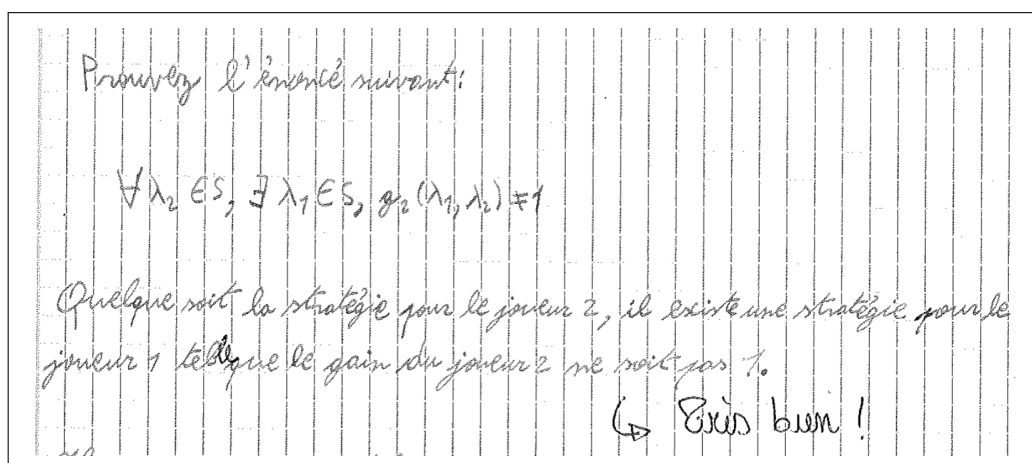 Prouvez l'énoncé suivant:
∀ λ₂ ∈ S, ∃ λ₁ ∈ S, g₂(λ₁, λ₂) ≠ 1
Quelque soit la stratégie pour le joueur 2, il existe une stratégie pour le
joueur 1 telle que le gain du joueur 2 ne soit pas 1.
↳ Très bien !